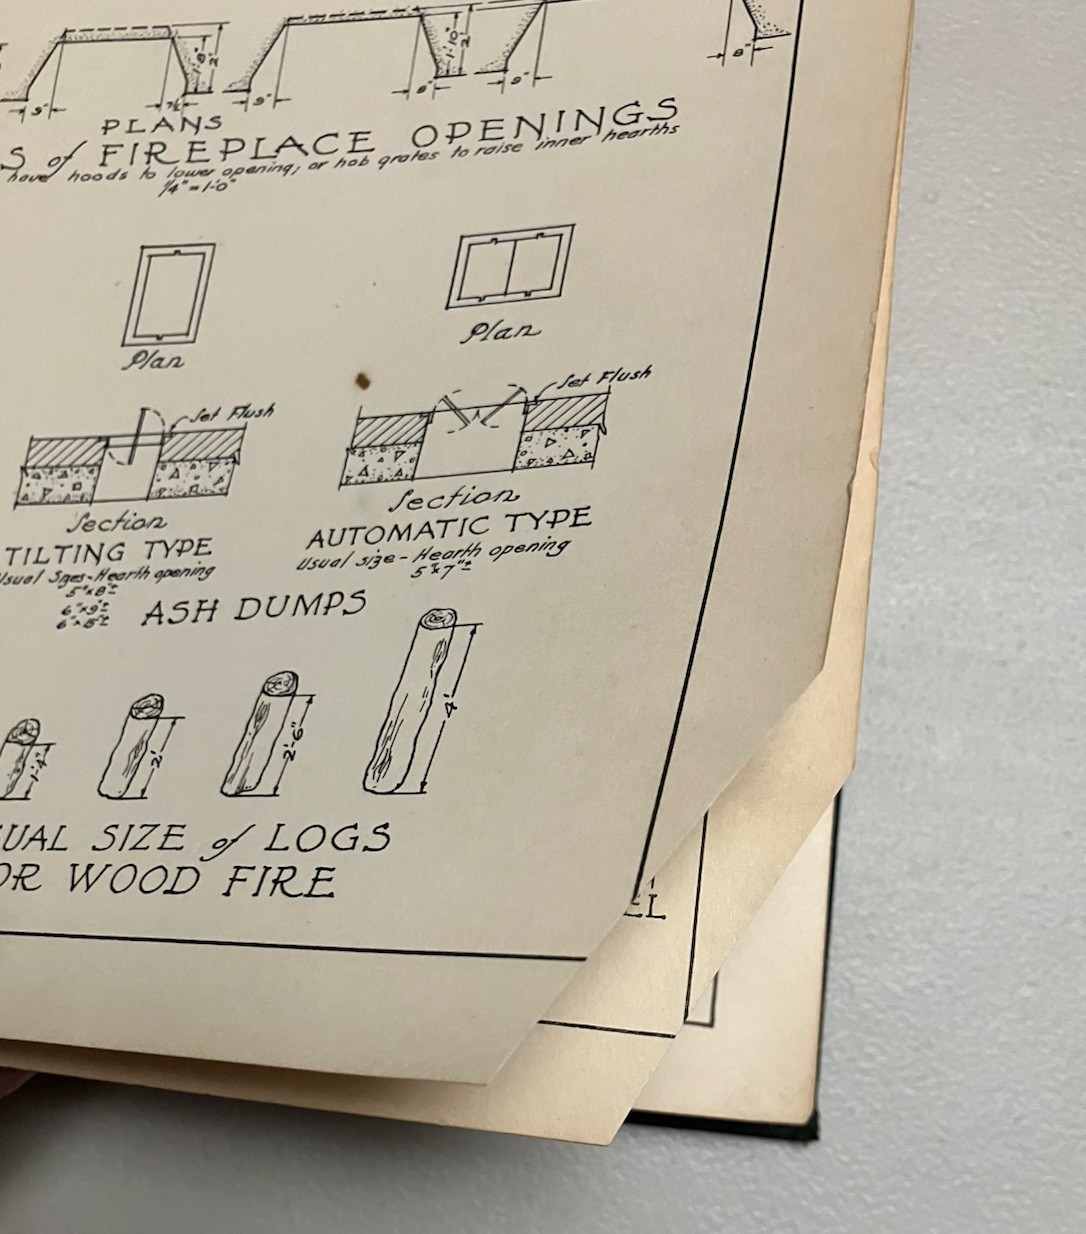 9"
7½"
1'-8"
9"
8"
1'-10"
9"
8"
PLANS
S of FIREPLACE OPENINGS
have hoods to lower opening, or hob grates to raise inner hearths
¼"=1'-0"
Plan
Plan
Set Flush
Set Flush
Section
Section
TILTING TYPE
AUTOMATIC TYPE
Usual Sizes-Hearth opening
Usual size-Hearth opening
5"x8"±
5"x7"±
6"x9"±
6"x8"±
ASH DUMPS
1'-4"
2'
2'-6"
4'
UAL SIZE of LOGS
OR WOOD FIRE
EL